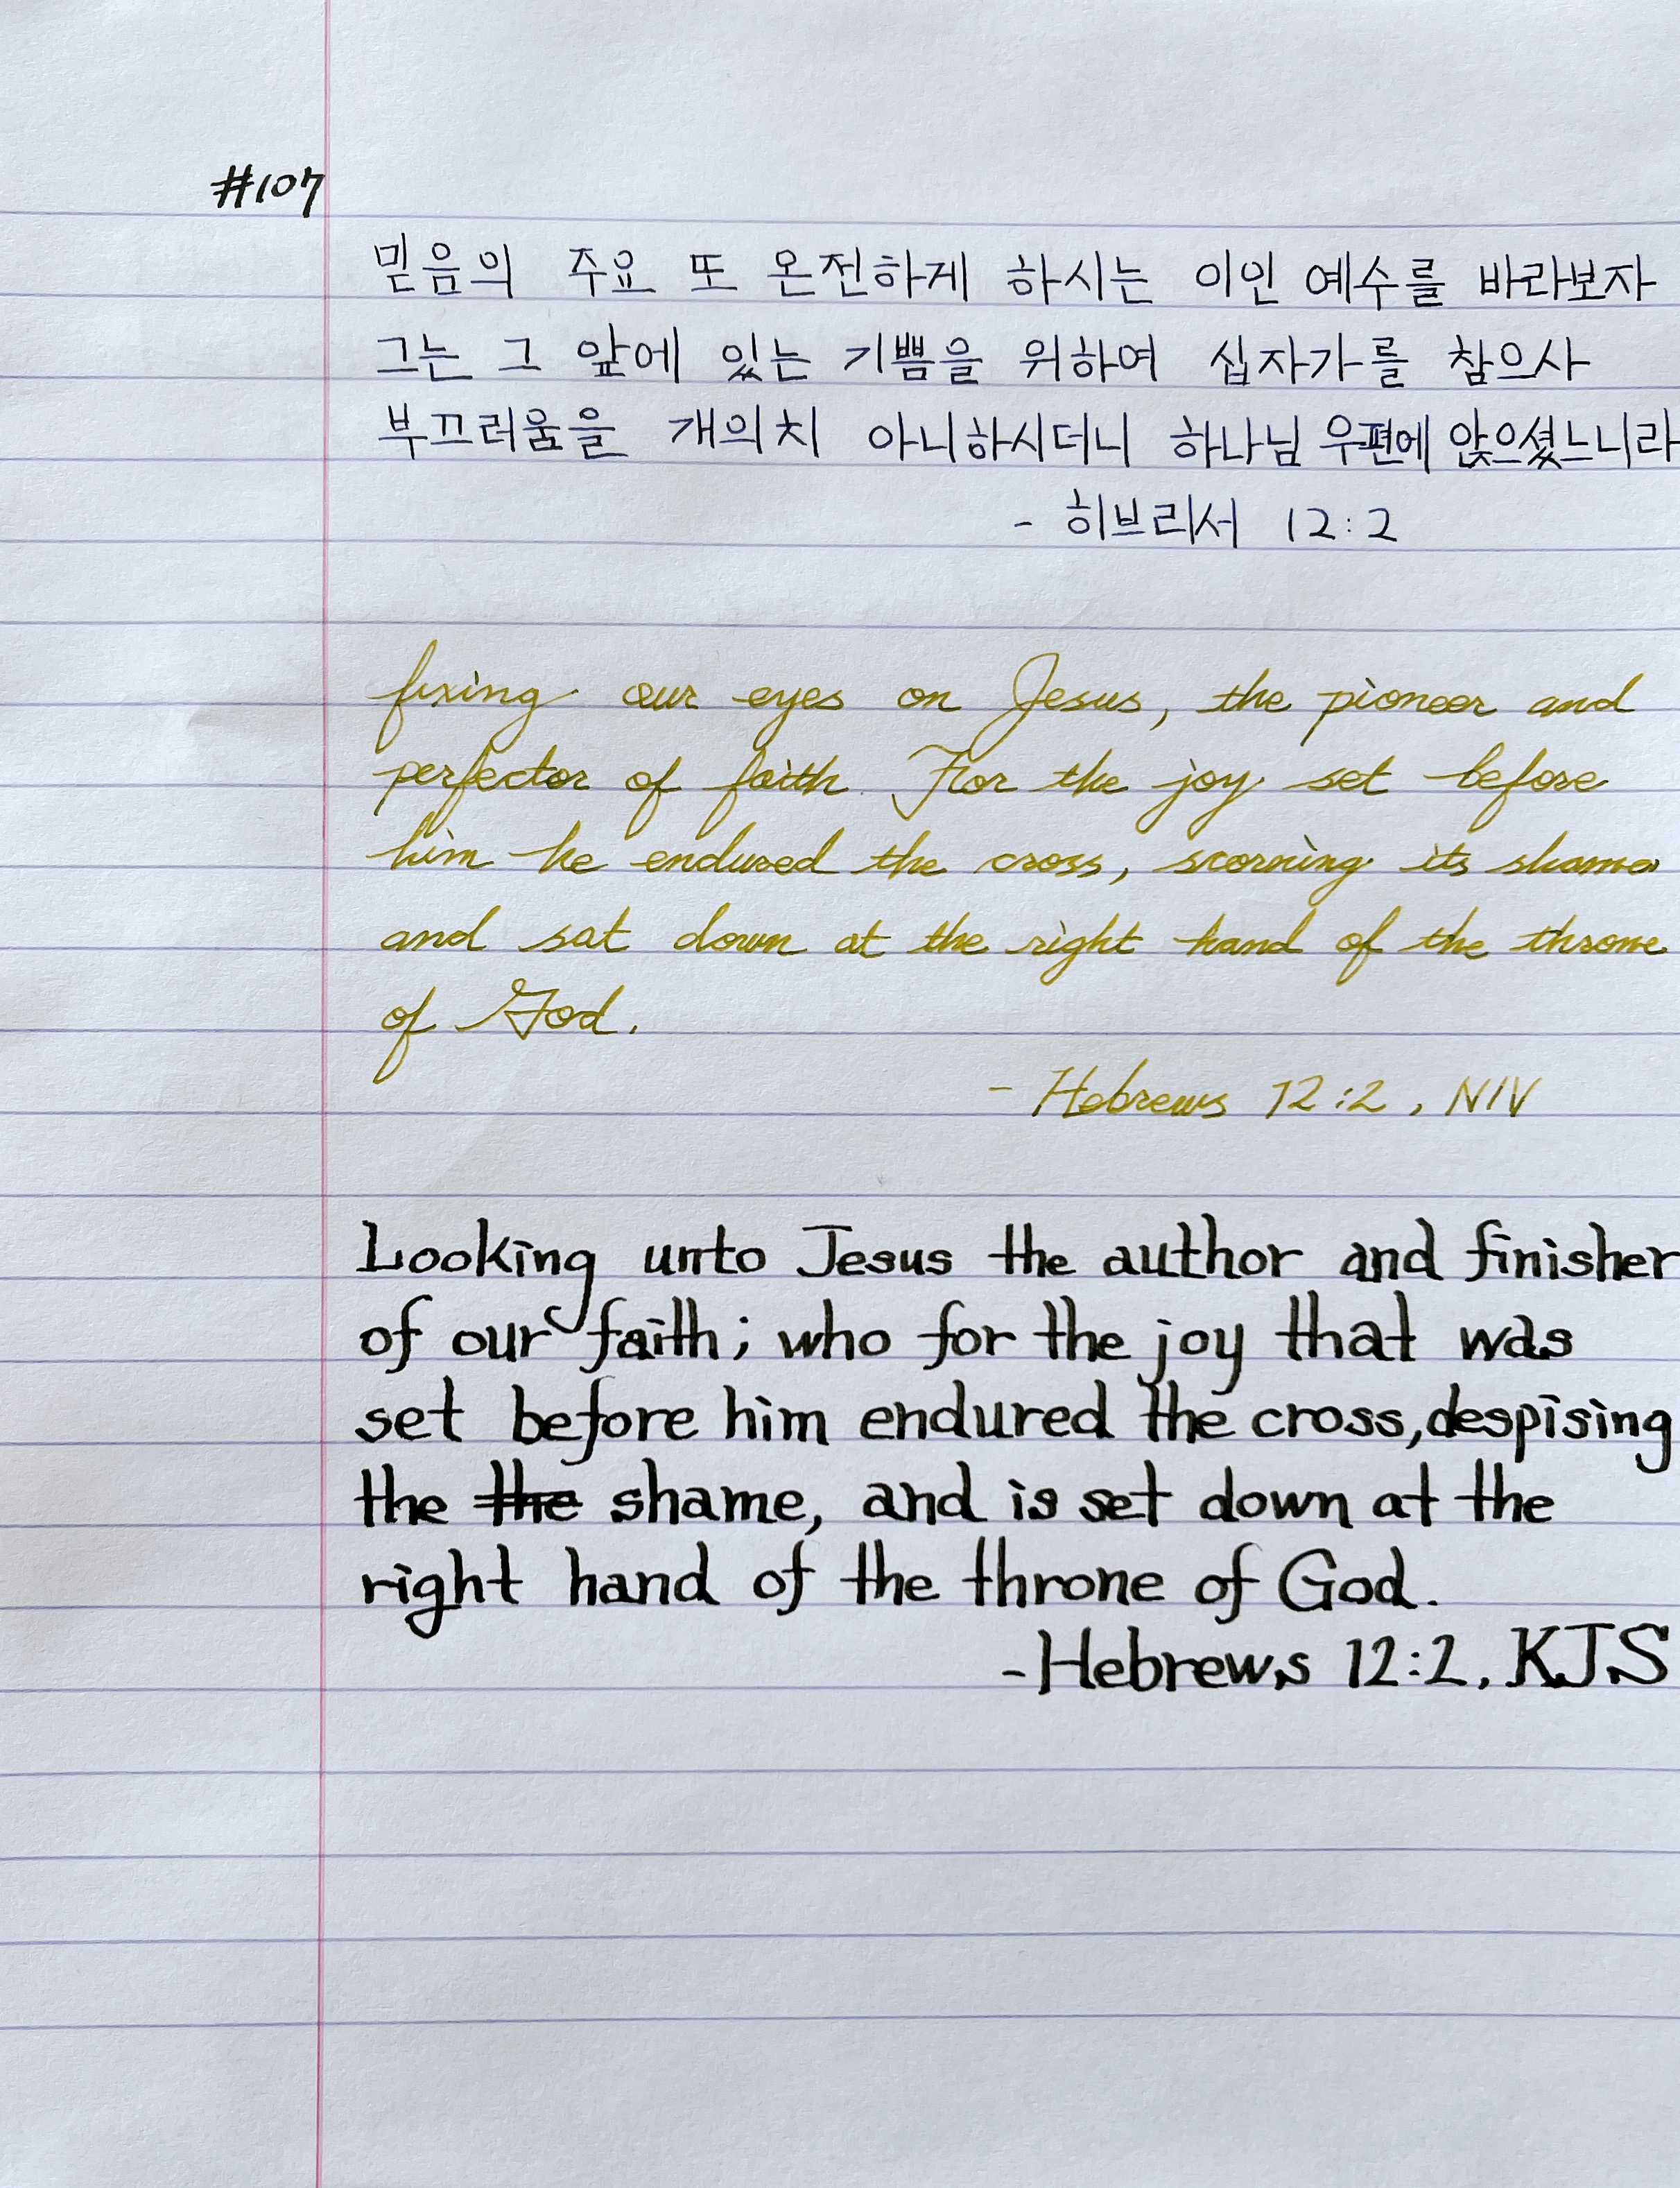 #107
믿음의 주요 또 온전하게 하시는 이인 예수를 바라보자
그는 그 앞에 있는 기쁨을 위하여 십자가를 참으사
부끄러움을 개의치 아니하시더니 하나님 우편에 앉으셨느니라
- 히브리서 12:2
fixing our eyes on Jesus, the pioneer and
perfector of faith. For the joy set before
him he endured the cross, scorning its shame
and sat down at the right hand of the throne
of God.
- Hebrews 12:2, NIV
Looking unto Jesus the author and finisher
of our faith; who for the joy that was
set before him endured the cross, despising
the the shame, and is set down at the
right hand of the throne of God.
- Hebrews 12:2, KJS